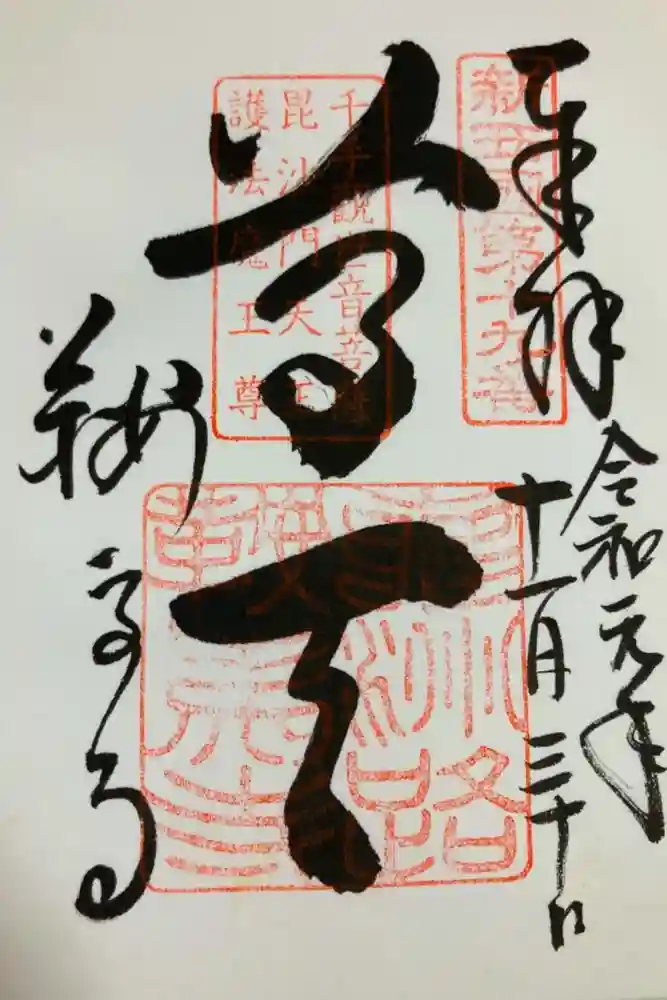 奉拝
新西國第十九番
令和元年
十一月三十日
千手觀世音菩薩
毘沙門天王
護法魔王尊
尊天
鞍馬寺